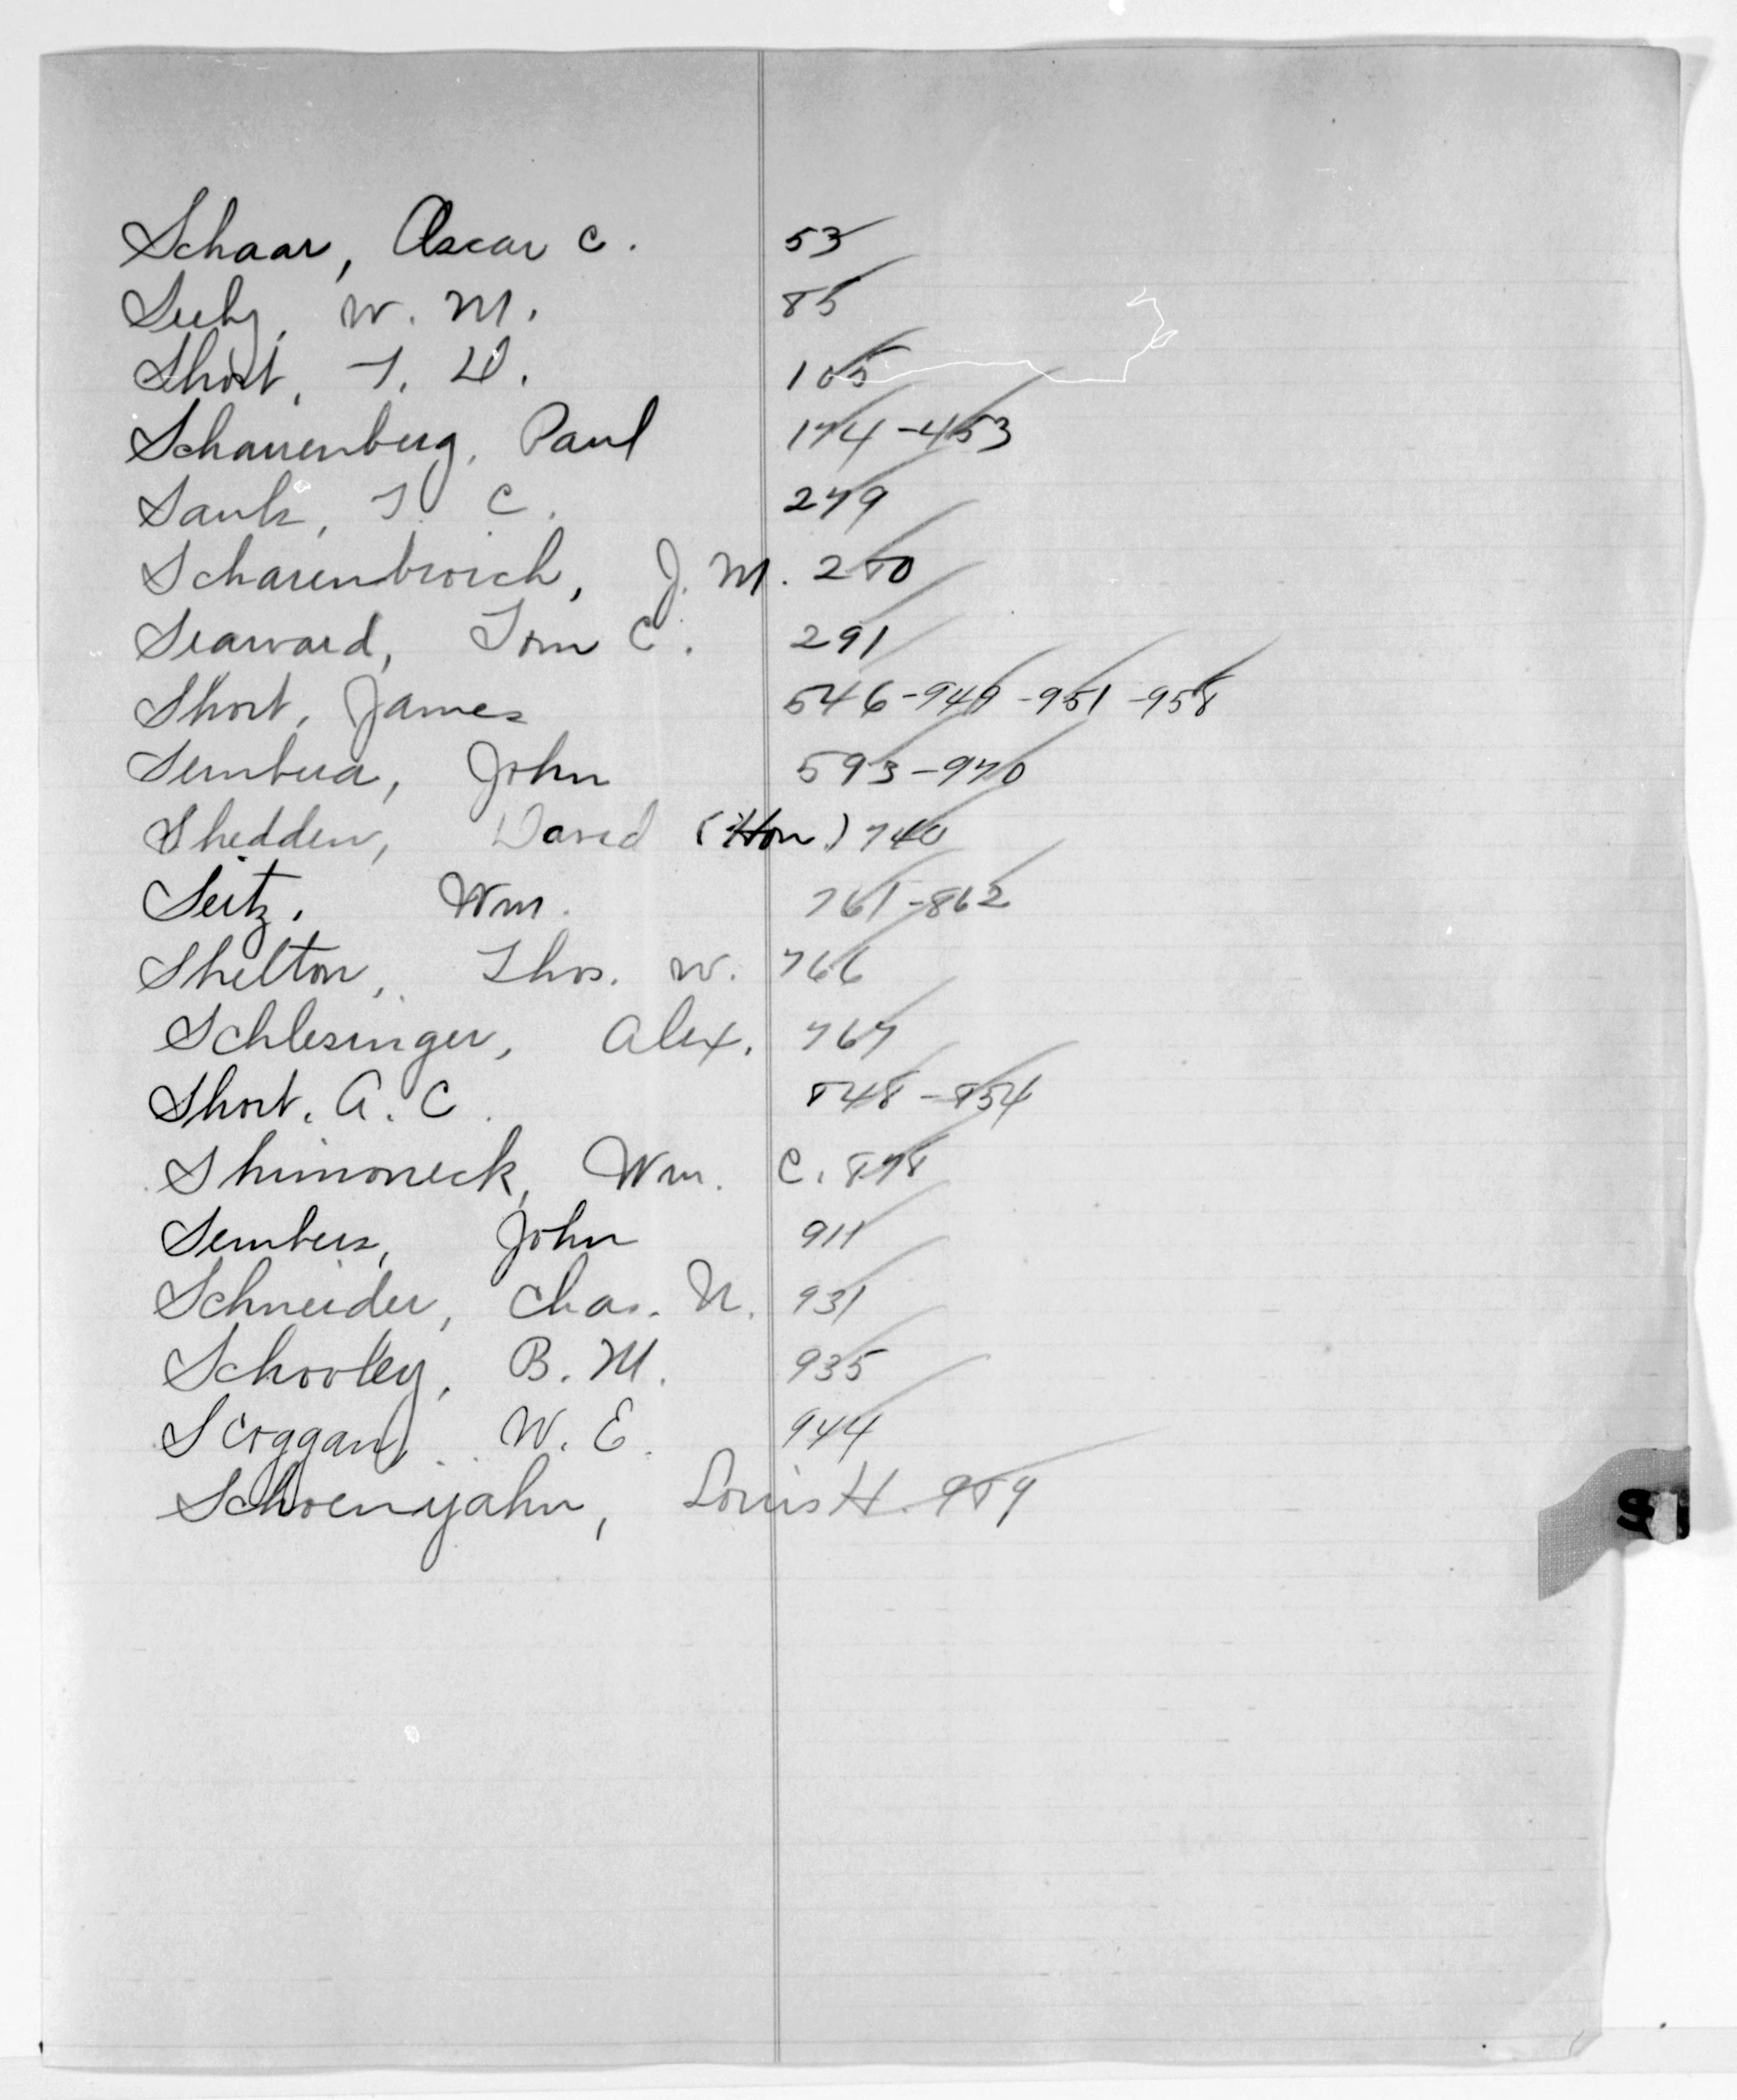 Schaar, Oscar C. 53
Seely, W. M. 85
Short, T. D. 105
Scharrenberg, Paul 174-453
Sauls, T. C. 279
Scharenbroich, J. M. 280
Seaward, Tom C. 291
Short, James 546-949-951-958
Sembera, John 593-970
Shedden, David (Hon) 740
Seitz, Wm. 761-862
Shelton, Thos. W. 766
Schlesinger, Alex. 767
Short, A. C. 848-854
Shimoneck, Wm. C. 878
Sembers, John 911
Schneider, Chas. N. 931
Schooley, B. M. 935
Scoggan, W. E. 944
Schoenjahn, Louis H. 989
S